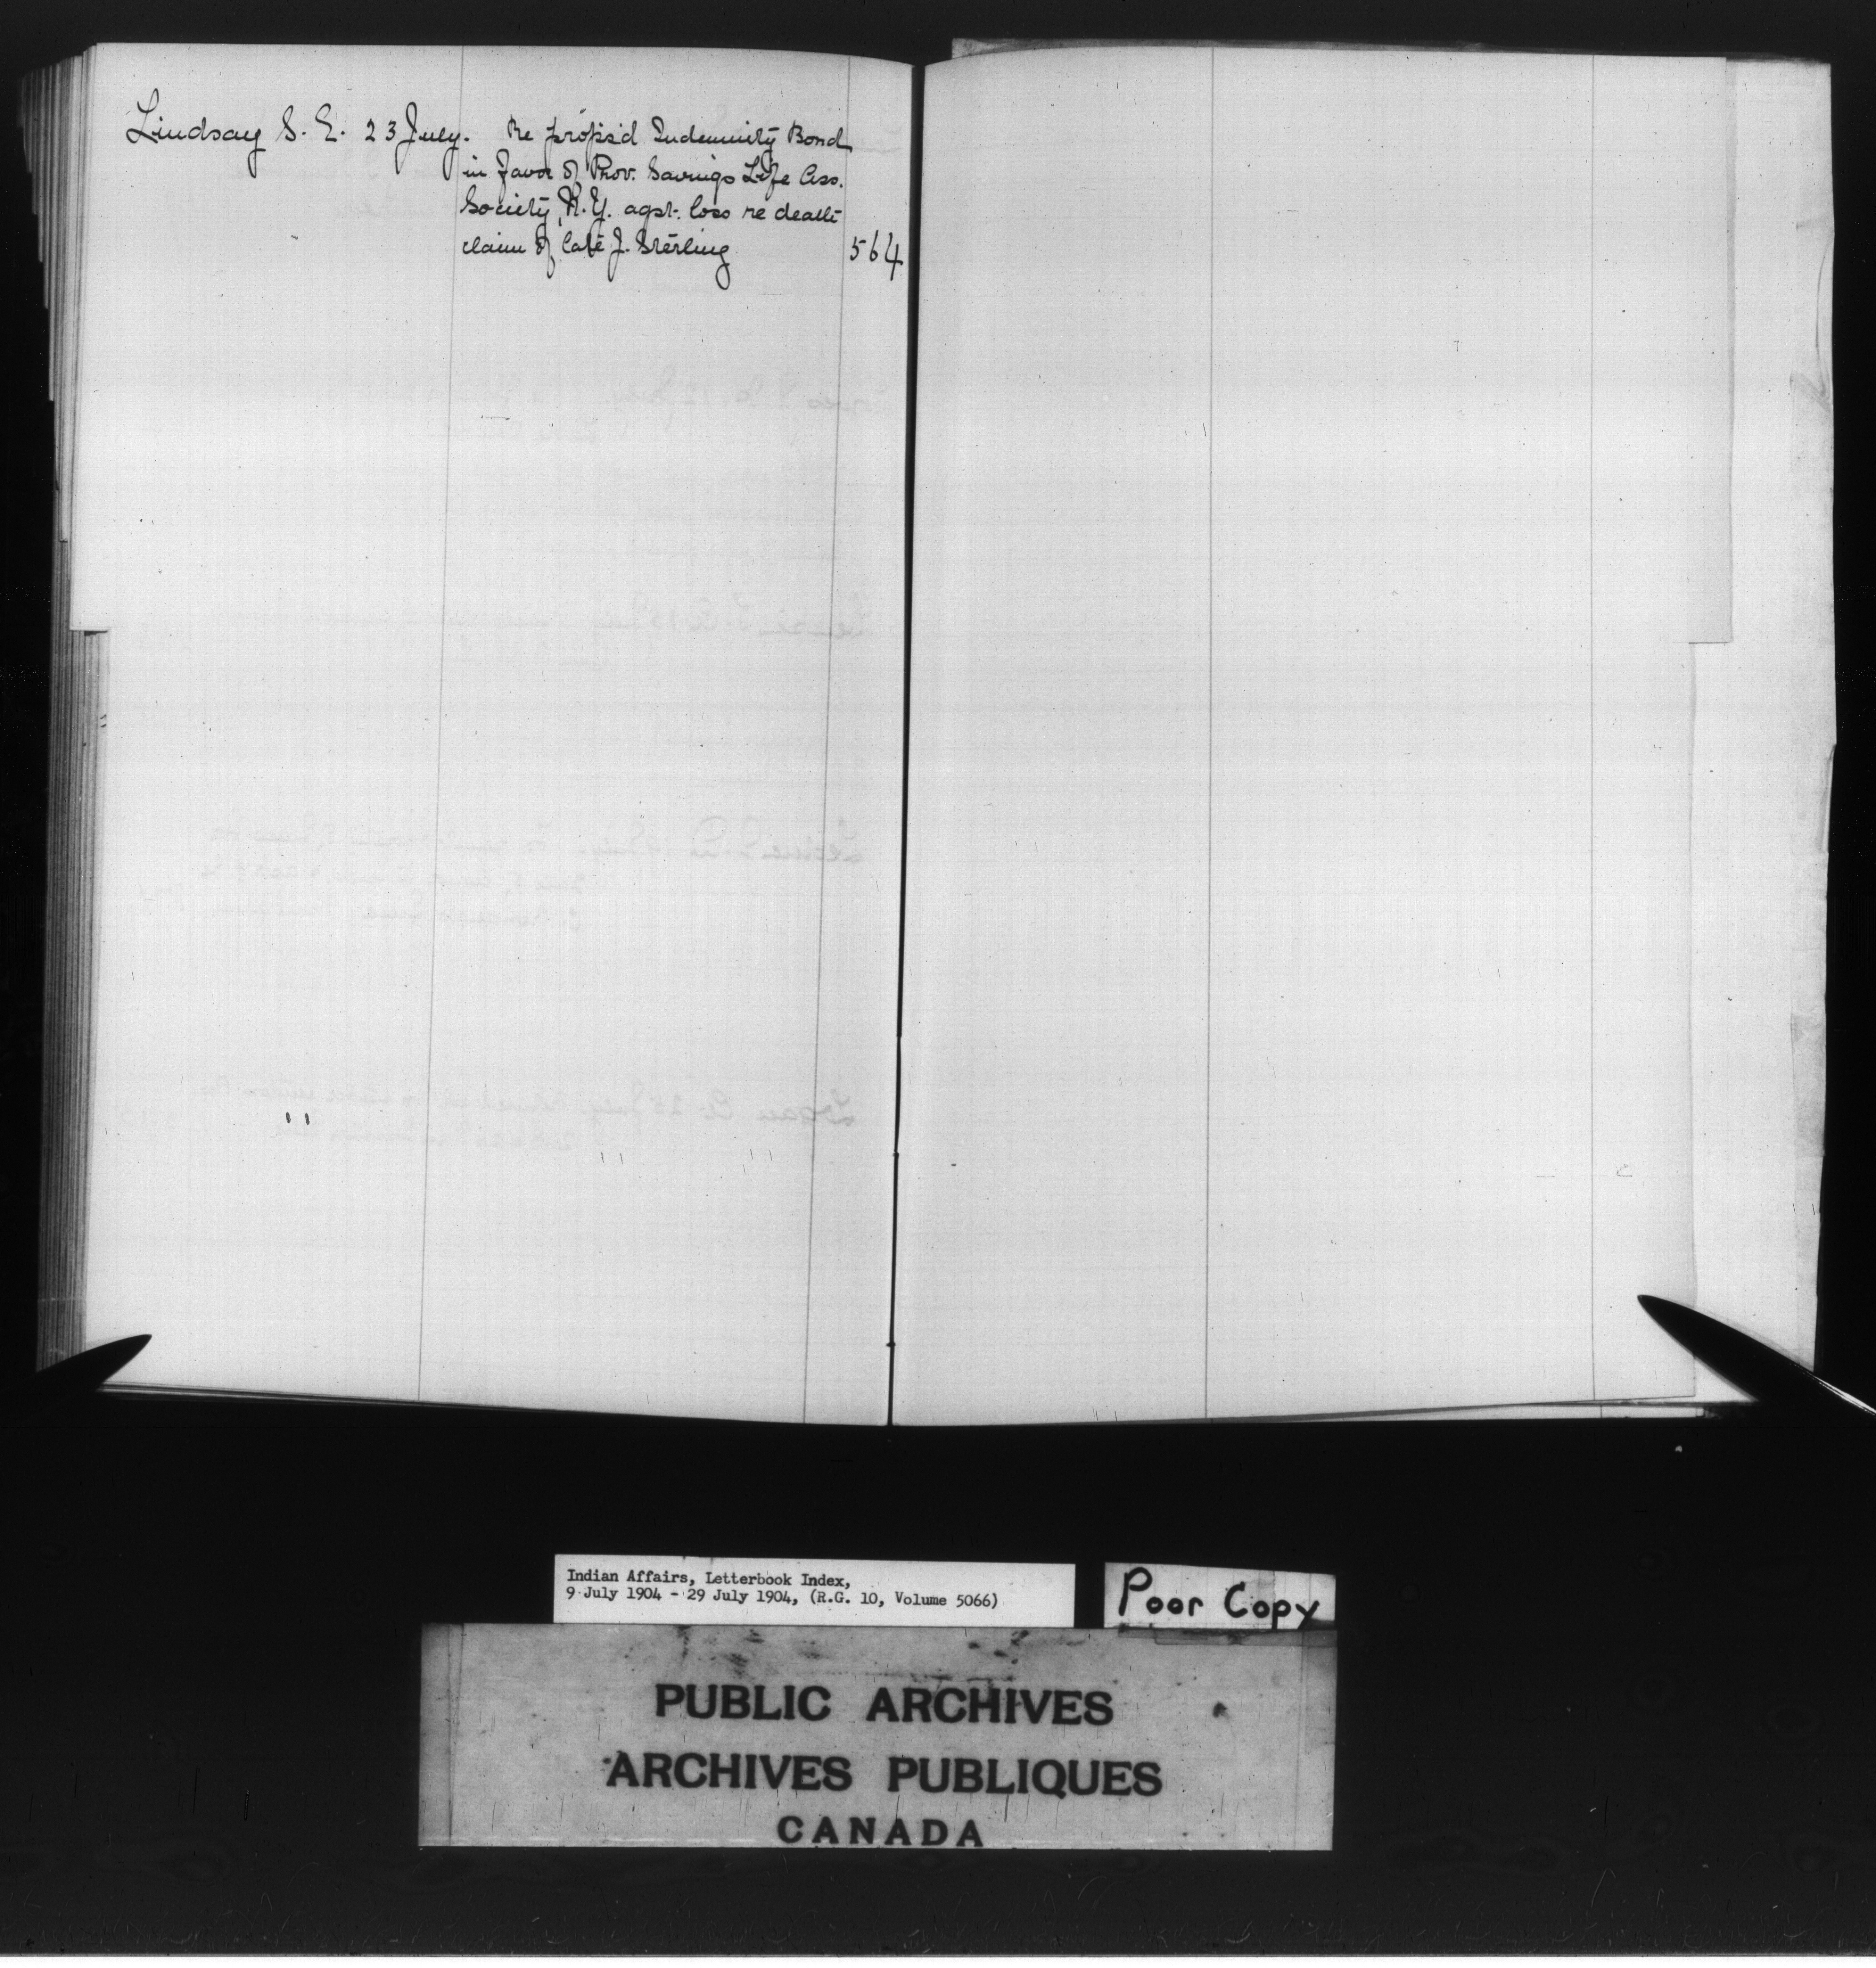 Lindsay S. E. 23 July. Re propsd Indemnity Bond
in favor of Prov. Savings Life Ass.
Society, N.Y. agst. loss re death
claim of late J. Sterling 564
Indian Affairs, Letterbook Index,
9 July 1904 - 29 July 1904, (R.G. 10, Volume 5066)
Poor Copy
PUBLIC ARCHIVES
ARCHIVES PUBLIQUES
CANADA